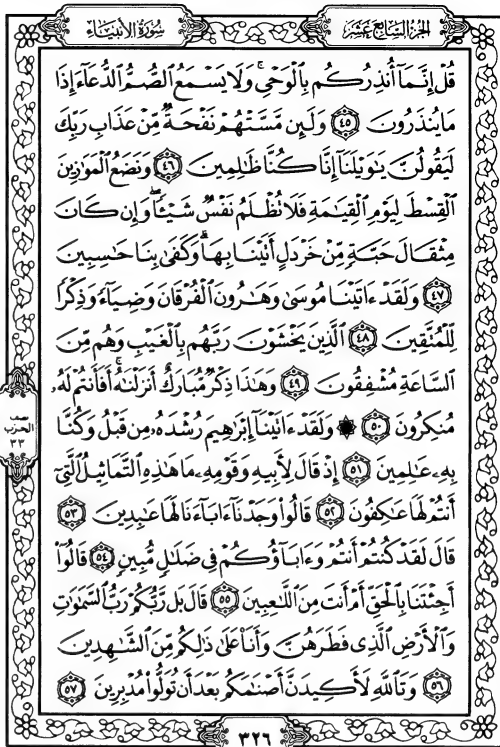 الجزء السابع عشر
سورة الأنبياء
قُلْ إِنَّمَآ أُنذِرُكُم بِالْوَحْيِ ۚ وَلَا يَسْمَعُ الصُّمُّ الدُّعَآءَ إِذَا
مَا يُنذَرُونَ ٤٥ وَلَئِن مَّسَّتْهُمْ نَفْحَةٌ مِّنْ عَذَابِ رَبِّكَ
لَيَقُولُنَّ يَٰوَيْلَنَآ إِنَّا كُنَّا ظَٰلِمِينَ ٤٦ وَنَضَعُ الْمَوَٰزِينَ
الْقِسْطَ لِيَوْمِ الْقِيَٰمَةِ فَلَا تُظْلَمُ نَفْسٌ شَيْـًٔا ۖ وَإِن كَانَ
مِثْقَالَ حَبَّةٍ مِّنْ خَرْدَلٍ أَتَيْنَا بِهَا ۗ وَكَفَىٰ بِنَا حَٰسِبِينَ
٤٧ وَلَقَدْ ءَاتَيْنَا مُوسَىٰ وَهَٰرُونَ الْفُرْقَانَ وَضِيَآءً وَذِكْرًا
لِّلْمُتَّقِينَ ٤٨ الَّذِينَ يَخْشَوْنَ رَبَّهُم بِالْغَيْبِ وَهُم مِّنَ
السَّاعَةِ مُشْفِقُونَ ٤٩ وَهَٰذَا ذِكْرٌ مُّبَارَكٌ أَنزَلْنَٰهُ ۚ أَفَأَنتُمْ لَهُۥ
مُنكِرُونَ ٥٠ ۞ وَلَقَدْ ءَاتَيْنَآ إِبْرَٰهِيمَ رُشْدَهُۥ مِن قَبْلُ وَكُنَّا
بِهِۦ عَٰلِمِينَ ٥١ إِذْ قَالَ لِأَبِيهِ وَقَوْمِهِۦ مَا هَٰذِهِ التَّمَاثِيلُ الَّتِيٓ
أَنتُمْ لَهَا عَٰكِفُونَ ٥٢ قَالُوا۟ وَجَدْنَآ ءَابَآءَنَا لَهَا عَٰبِدِينَ ٥٣
قَالَ لَقَدْ كُنتُمْ أَنتُمْ وَءَابَآؤُكُمْ فِي ضَلَٰلٍ مُّبِينٍ ٥٤ قَالُوٓا۟
أَجِئْتَنَا بِالْحَقِّ أَمْ أَنتَ مِنَ اللَّٰعِبِينَ ٥٥ قَالَ بَل رَّبُّكُمْ رَبُّ السَّمَٰوَٰتِ
وَالْأَرْضِ الَّذِي فَطَرَهُنَّ وَأَنَا۠ عَلَىٰ ذَٰلِكُم مِّنَ الشَّٰهِدِينَ
٥٦ وَتَاللَّهِ لَأَكِيدَنَّ أَصْنَٰمَكُم بَعْدَ أَن تُوَلُّوا۟ مُدْبِرِينَ ٥٧
نصف
الحزب
٣٣
٣٢٦